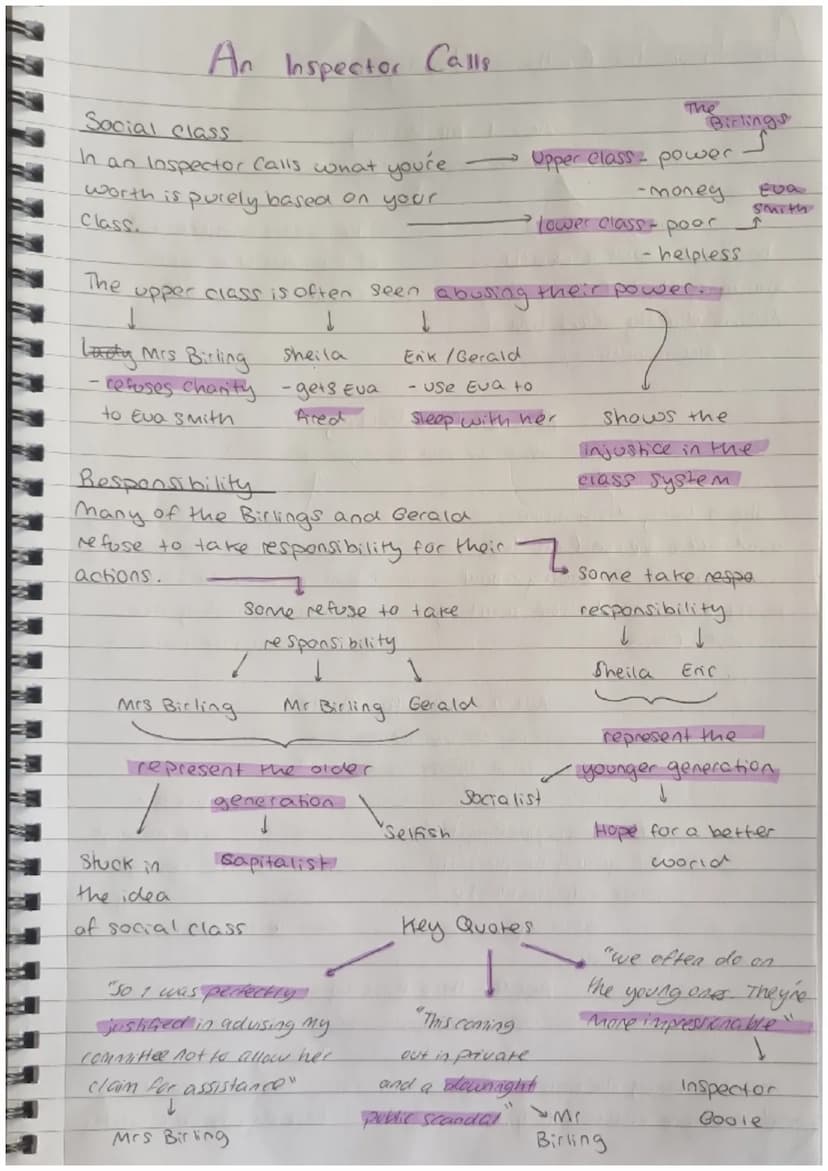 An Inspector Calls
The
Birlings
Social class
In an Inspector Calls what you're → Upper class - power
worth is purely based on your - money Eva
Class. → lower class - poor Smith
- helpless
The upper class is often seen abusing their power.
Lady Mrs Birling Sheila Erik/Gerald
- refuses charity - gets Eva - use Eva to
to Eva Smith fired sleep with her shows the
injustice in the
Responsibility class system
Many of the Birlings and Gerald
refuse to take responsibility for their
actions. some take respo
Some refuse to take responsibility
responsibility
Sheila Eric
Mrs Birling Mr Birling Gerald
represent the
represent the older younger generation
generation Socialist
Selfish Hope for a better
Stuck in Capitalist world
the idea
of social class Key Quotes
"We often do on
"So I was perfectly the young ones. They're
justified in advising my "This coming more impressionable"
committee not to allow her out in private
claim for assistance" and a downright Inspector
public scandal" Mr Goole
Mrs Birling Birling